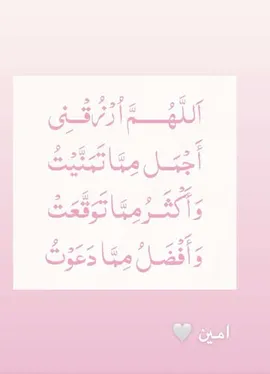 اَللَّهُـــمَّ اُرْزُقْنِي
أَجْمَل مِمَّا تَمَنَّيْتُ
وَأَكْثَرُ مِمَّا تَوَقَّعَتْ
وَأَفْضَلُ مِمَّا دَعَوْتُ
امين 🤍